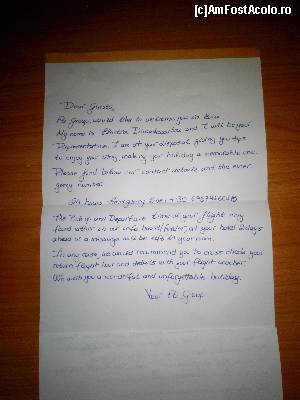 [c]AmFostAcolo.ro
Dear Guests,
Fti Group, would like to welcome you in
My name is and I will be your
Representative. I am at your disposal, giving you tips
to enjoy your stay, making your holiday a memorable one.
Please find below our contact details and the emer
gency number
24 hours Emergency Line:
The Pick up and Departure time of your flight may
found either on our info board/folder, at your hotel 2 days
ahead or a message will be left in your room.
In any case, we would recommend you to cross check your
return flight hour and details with your flight voucher.
We wish you a wonderful and unforgettable holiday.
Your Fti Group